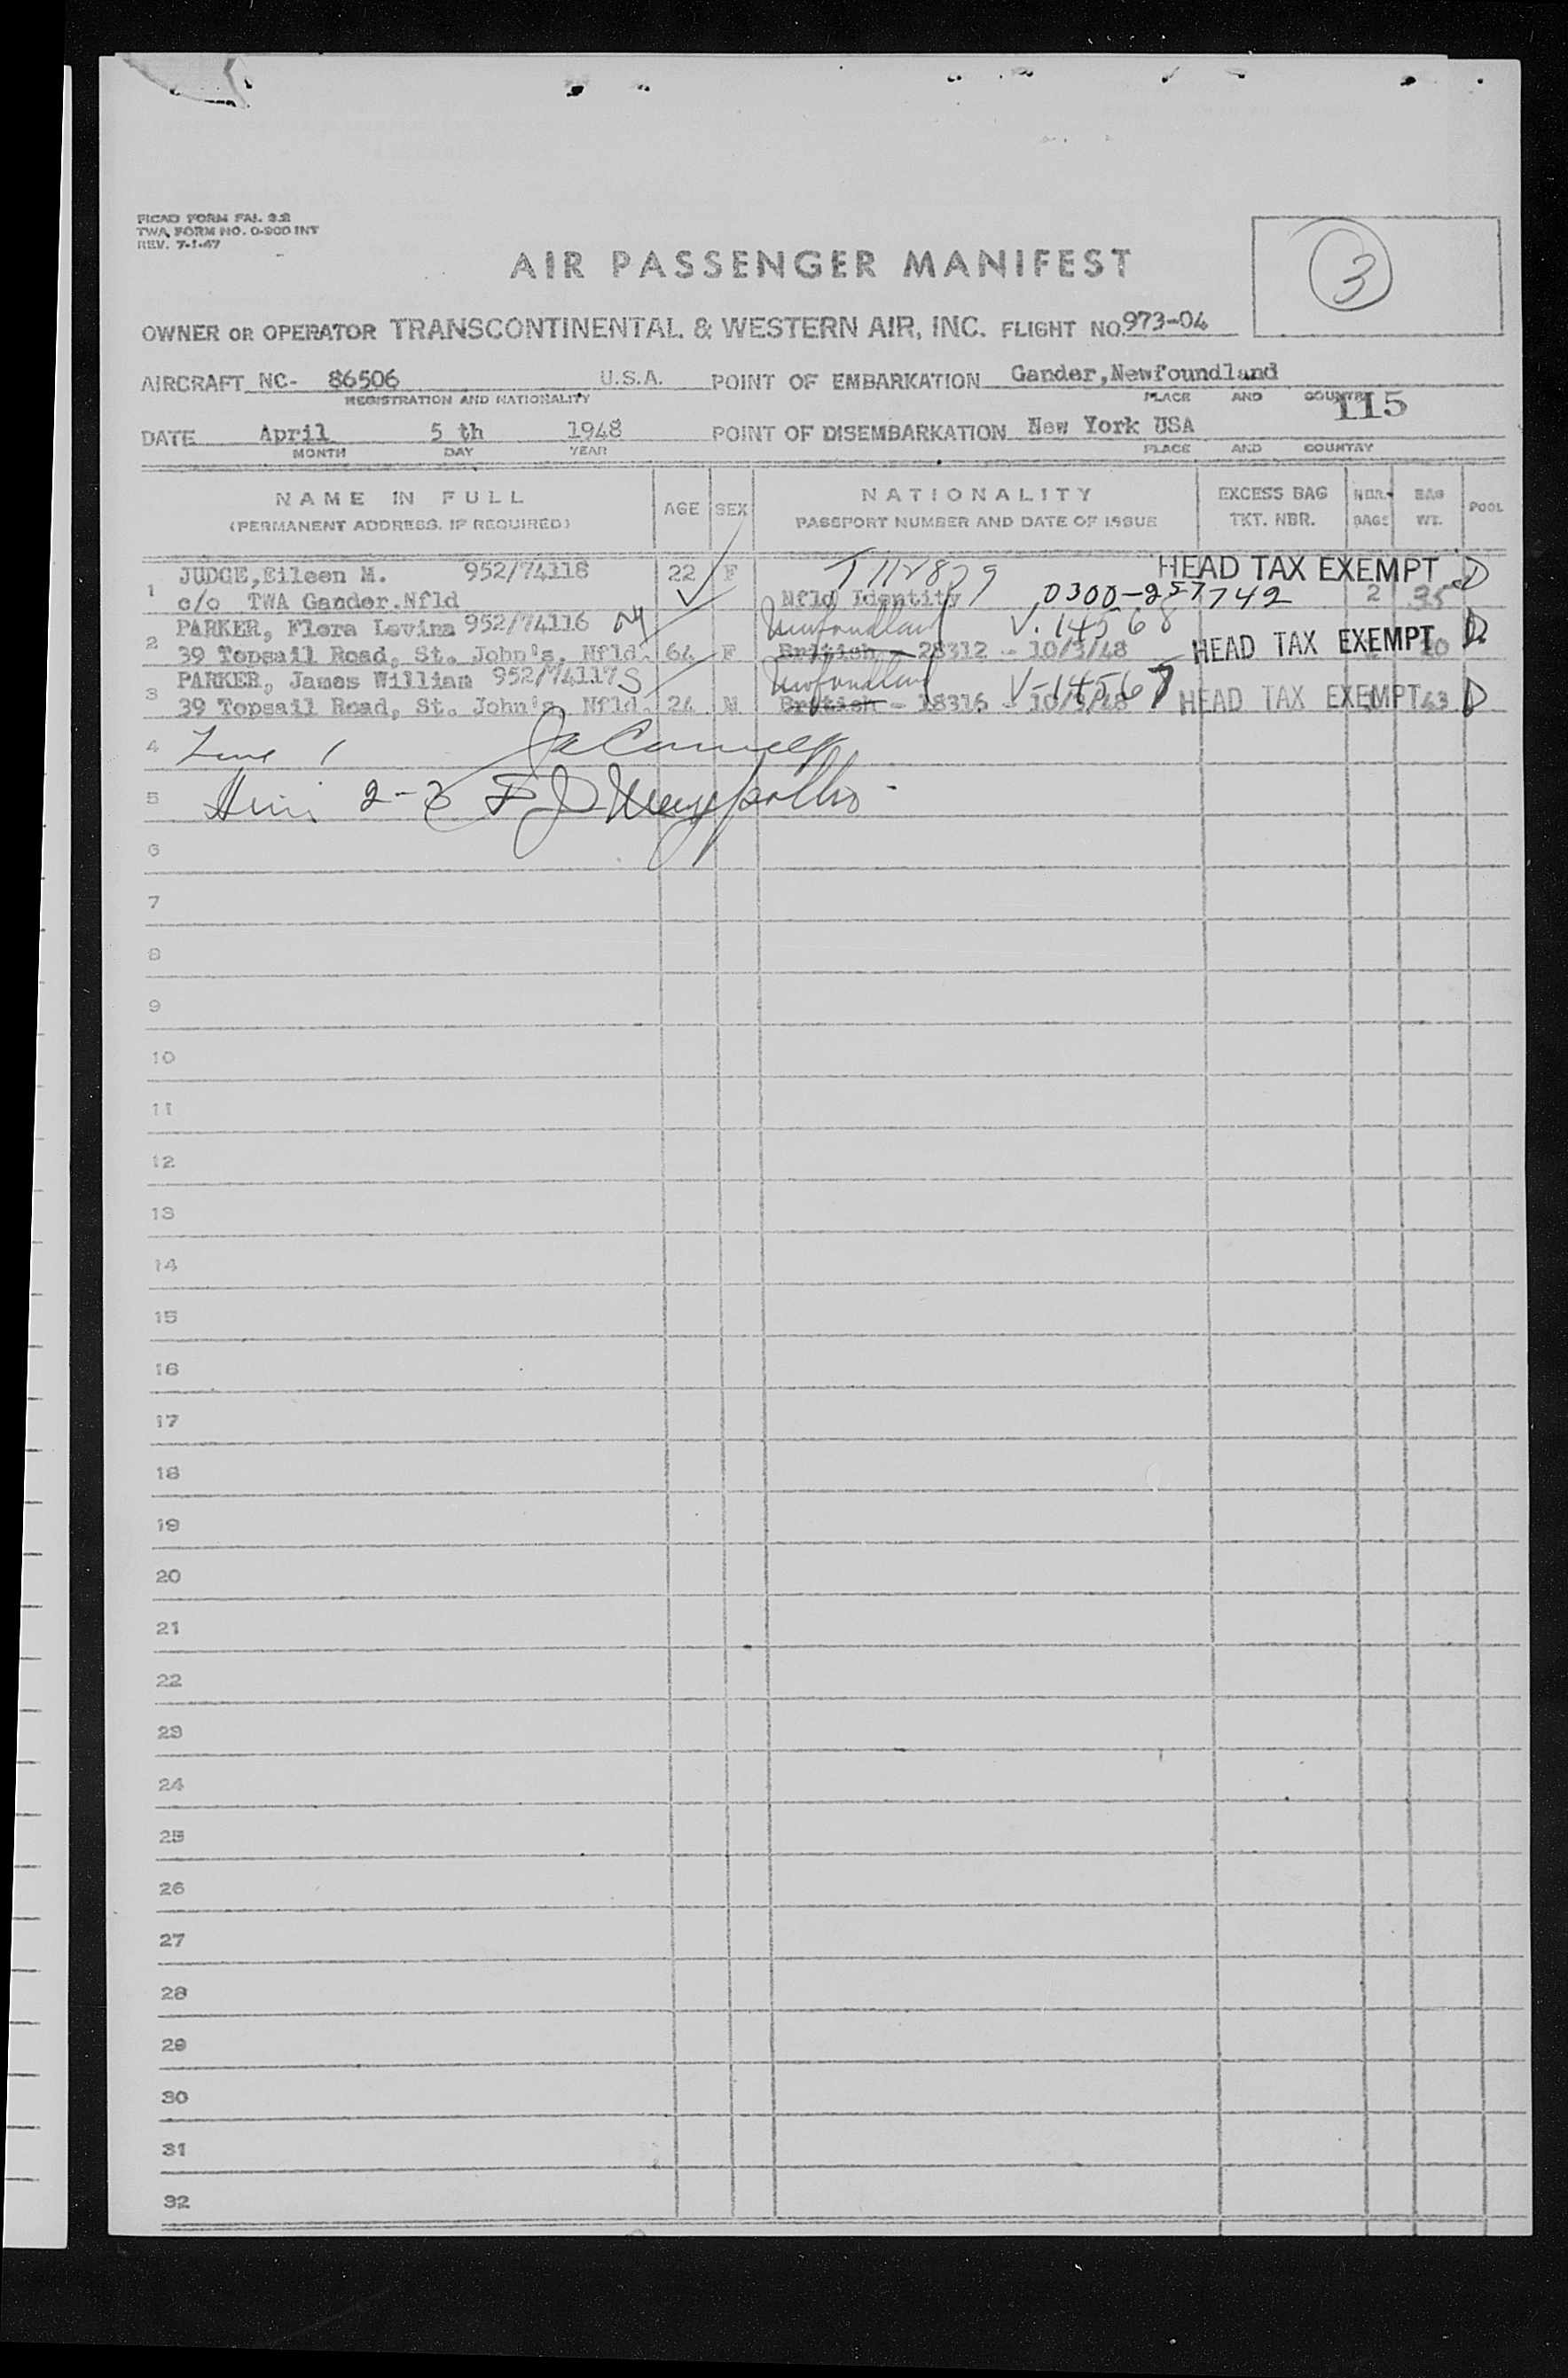 FICAO FORM FAL 2.2
TWA FORM NO. 0-900 INT
REV. 7-1-47
AIR PASSENGER MANIFEST
3
OWNER OR OPERATOR TRANSCONTINENTAL & WESTERN AIR, INC. FLIGHT NO. 973-04
AIRCRAFT NC- 86506 U.S.A. POINT OF EMBARKATION Gander,Newfoundland
REGISTRATION AND NATIONALITY PLACE AND COUNTRY
115
DATE April 5 th 1948 POINT OF DISEMBARKATION New York USA
MONTH DAY YEAR PLACE AND COUNTRY
NAME IN FULL AGE SEX NATIONALITY EXCESS BAG NBR. BAG POOL
(PERMANENT ADDRESS. IF REQUIRED) PASSPORT NUMBER AND DATE OF ISSUE TKT. NBR. BAGS WT.
1 JUDGE,Eileen M. 952/74118 22 F T 112879 HEAD TAX EXEMPT D
c/o TWA Gander.Nfld Nfld Identity 0300-257742 2 35
2 PARKER, Flora Lovina 952/74116 M Newfoundland V. 14568
39 Topsail Road, St. John's, Nfld. 64 F British - 28312 - 10/3/48 HEAD TAX EXEMPT D
3 PARKER, James William 952/74117 S Newfoundland V-14567
39 Topsail Road, St. John's, Nfld. 24 M British - 18316 - 10/3/48 HEAD TAX EXEMPT 43 D
4 Line 1
5 2-3
6
7
8
9
10
11
12
13
14
15
16
17
18
19
20
21
22
23
24
25
26
27
28
29
30
31
32